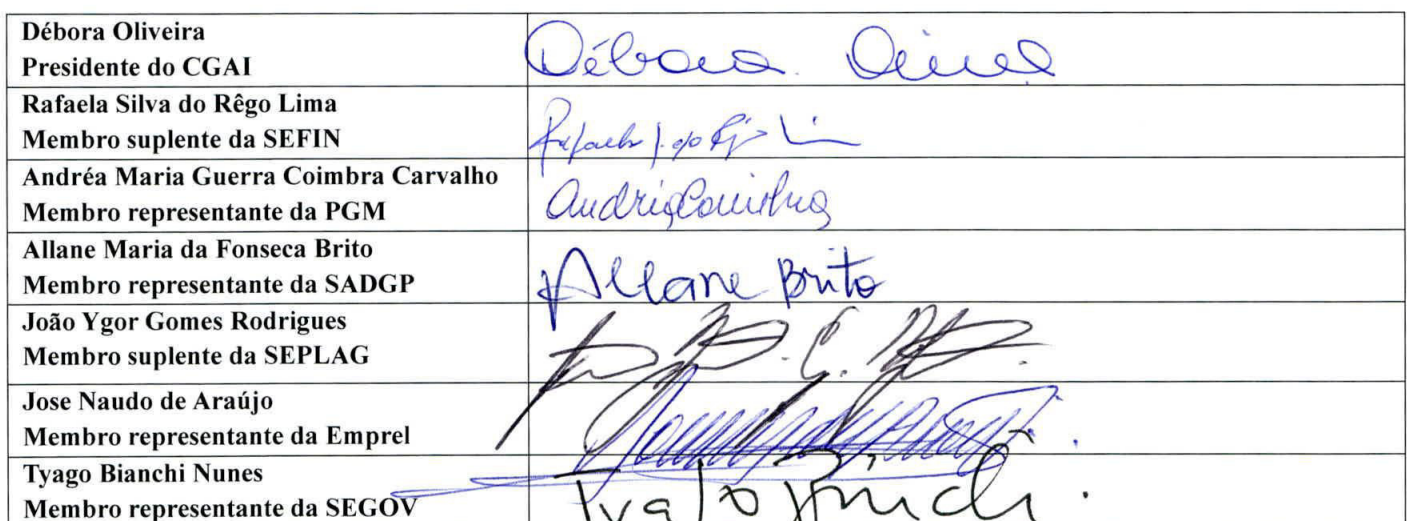 Débora Oliveira
Presidente do CGAI
Débora
Rafaela Silva do Rêgo Lima
Membro suplente da SEFIN
Andréa Maria Guerra Coimbra Carvalho
Membro representante da PGM
Allane Maria da Fonseca Brito
Membro representante da SADGP
Allane Brito
João Ygor Gomes Rodrigues
Membro suplente da SEPLAG
Jose Naudo de Araújo
Membro representante da Emprel
Tyago Bianchi Nunes
Membro representante da SEGOV